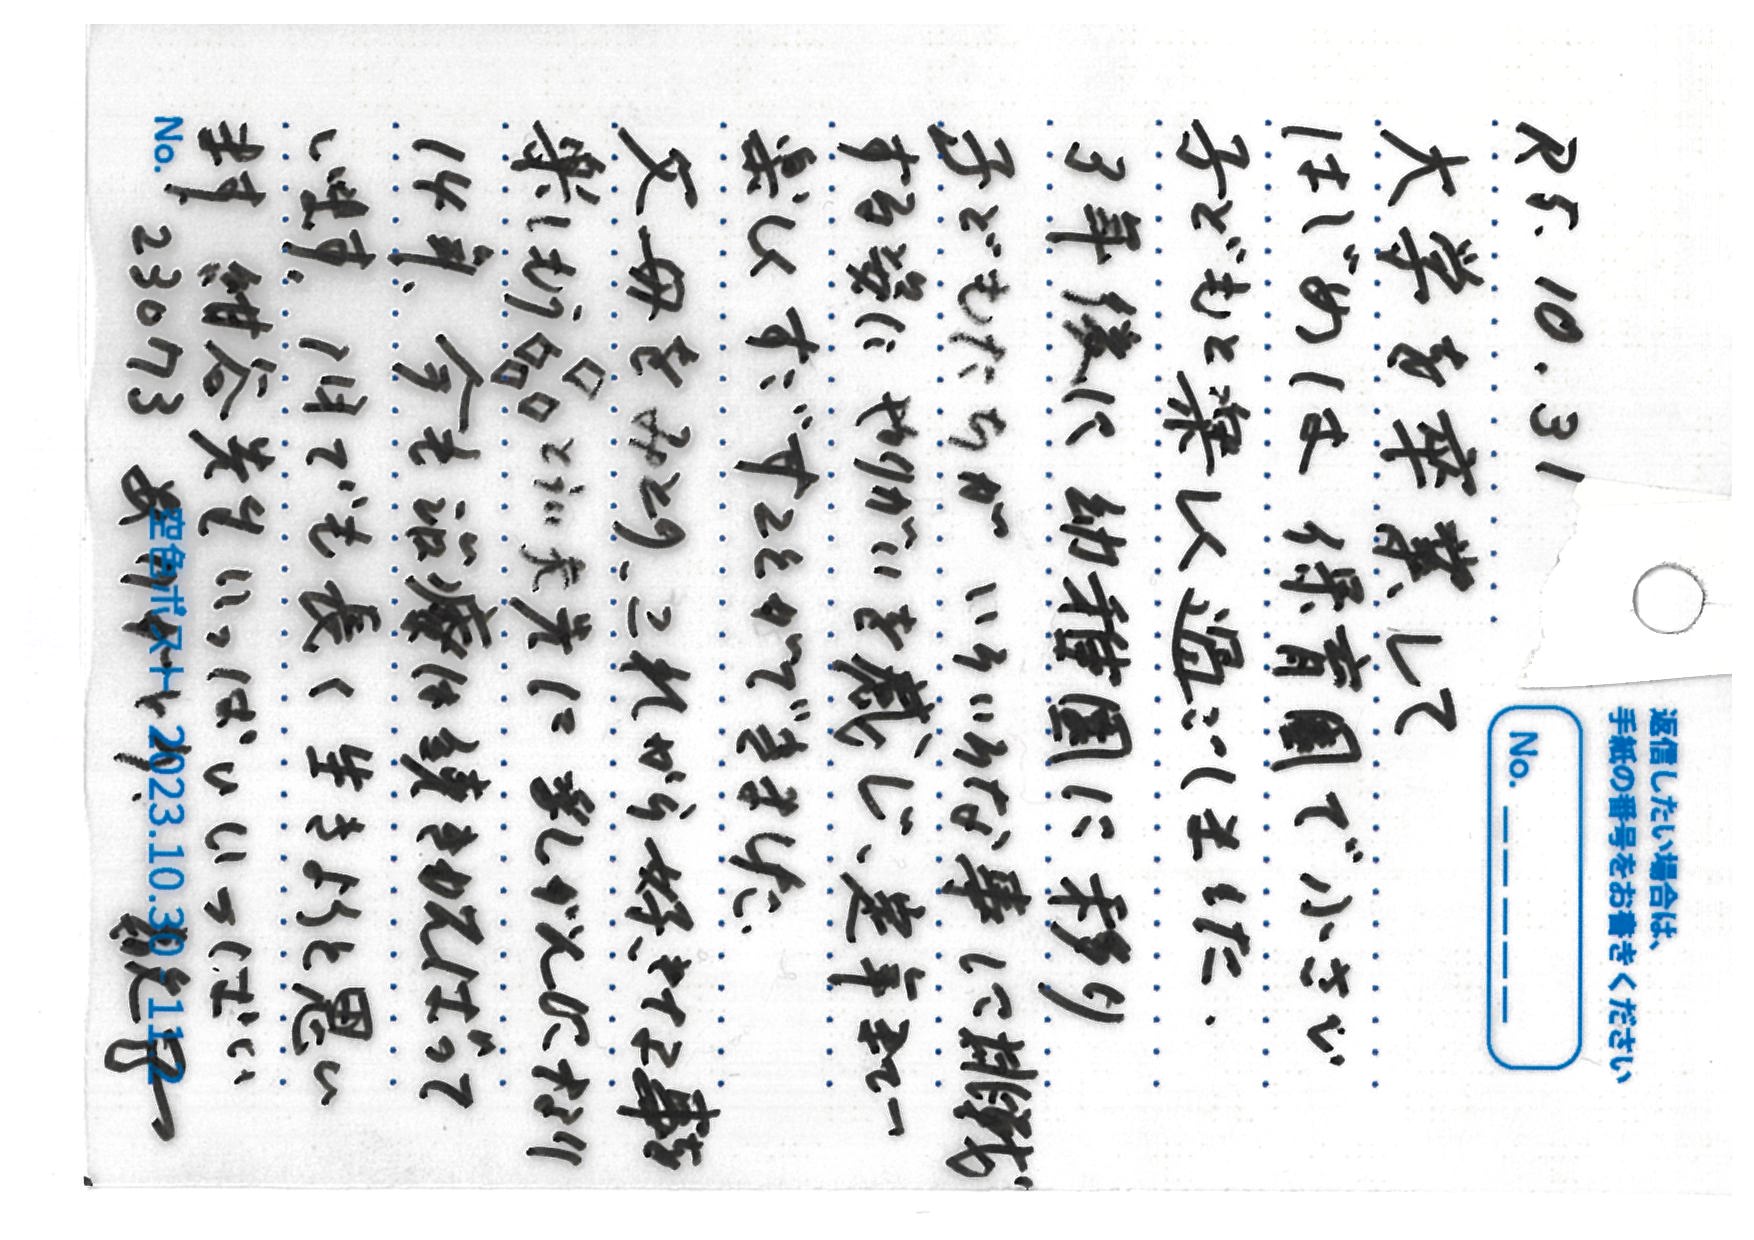 返信したい場合は、
手紙の番号をお書きください
No. _ _ _ _ _
R5.10.31
大学を卒業して
はじめは 保育園で小さい
子どもと楽しく過ごしました.
3年後に 幼稚園に 移り
子どもたちが いろいろな事に挑戦
する姿に やりがいを感じ、定年まで
楽しくすごすことができました.
父母をみとり、これから好きな事を
楽しもう とういう矢先に 乳がんになり
14年、今も治療は続きがんばって
います。1日でも長く生きようと思い
ます 紺谷先生いっぱいいっぱい
No. 23073 ありがとう. 敬子
空色ポスト 2023.10.30 - 11.2